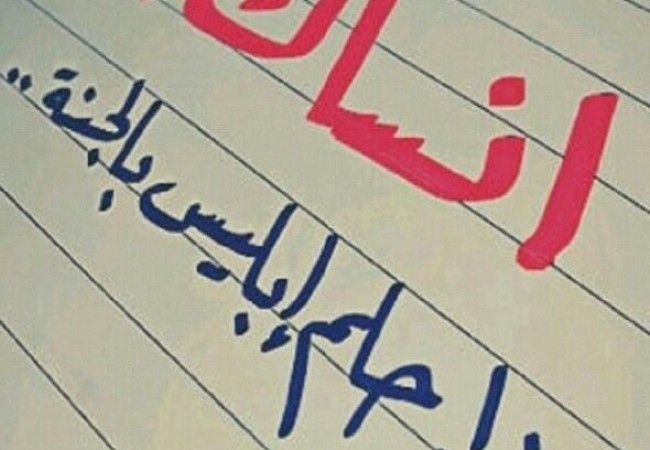 انساك
حلم إبليس بالجنة ..